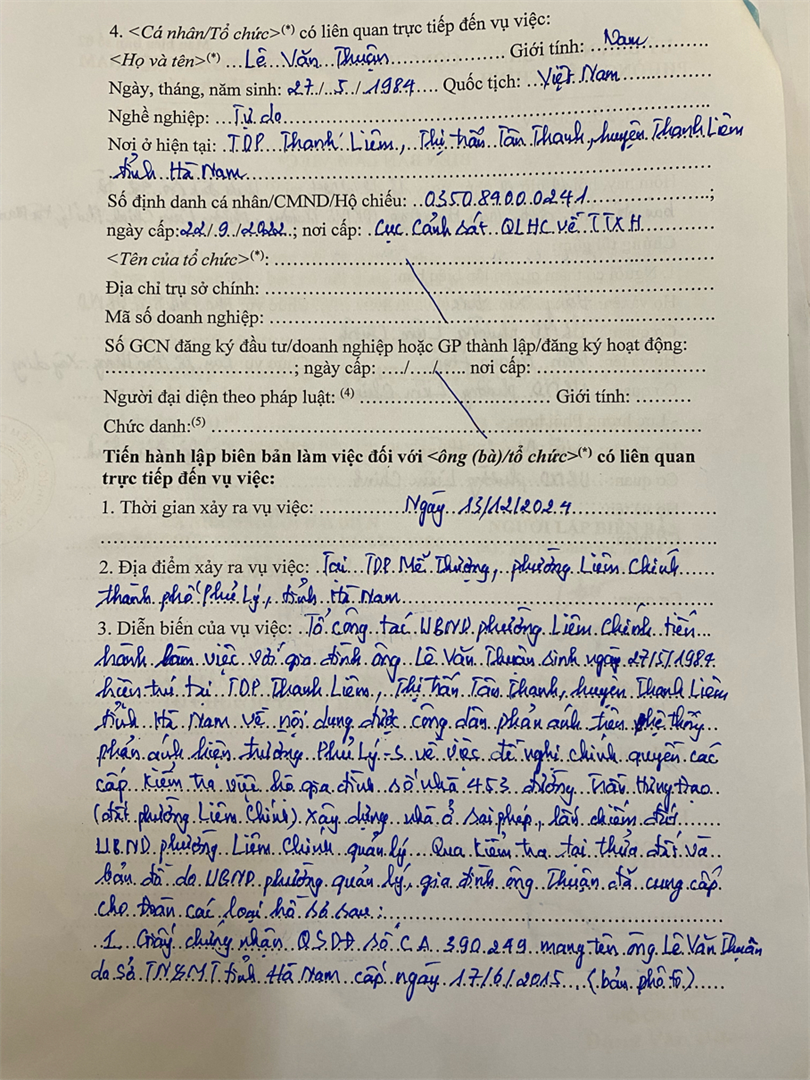 4. <Cá nhân/Tổ chức>(*) có liên quan trực tiếp đến vụ việc:
<Họ và tên>(*) ...Lê Văn Thuận........................ Giới tính: ...Nam............
Ngày, tháng, năm sinh: 27./..5../.1984.... Quốc tịch: ..Việt Nam................
Nghề nghiệp: ...Tự do........................................................................
Nơi ở hiện tại: .TDP. Thanh Liêm., Thị trấn Tân Thanh, huyện Thanh Liêm
.tỉnh Hà Nam..............................................................................
Số định danh cá nhân/CMND/Hộ chiếu: ..035084000241.....................;
ngày cấp:22/.9../2022.; nơi cấp: .Cục Cảnh sát QLHC về TTXH............
<Tên của tổ chức>(*): ......................................................................
Địa chỉ trụ sở chính: .......................................................................
Mã số doanh nghiệp: .......................................................................
Số GCN đăng ký đầu tư/doanh nghiệp hoặc GP thành lập/đăng ký hoạt động:
..............................; ngày cấp: ..../..../..... nơi cấp: ...........................
Người đại diện theo pháp luật: (4) ............................... Giới tính: .........
Chức danh:(5) ...............................................................................
Tiến hành lập biên bản làm việc đối với <ông (bà)/tổ chức>(*) có liên quan
trực tiếp đến vụ việc:
1. Thời gian xảy ra vụ việc: ..............Ngày 13/12/2024.......................
..................................................................................................
2. Địa điểm xảy ra vụ việc: ..Tại TDP Mễ Thượng, phường Liêm Chính......
thành phố Phủ Lý, tỉnh Hà Nam...................................................
3. Diễn biến của vụ việc: ..Tổ công tác UBND phường Liêm Chính tiến...
hành làm việc với gia đình ông Lê Văn Thuận sinh ngày 27/5/1984.
hiện trú tại TDP Thanh Liêm, Thị trấn Tân Thanh, huyện Thanh Liêm
tỉnh Hà Nam về nội dung được công dân phản ánh trên hệ thống
phản ánh hiện trường Phủ Lý-S về việc đề nghị chính quyền các
cấp kiểm tra việc hộ gia đình số nhà 453 đường Trần Hưng Đạo
(đất phường Liêm Chính) xây dựng nhà ở sai phép, lấn chiếm đất
UBND phường Liêm Chính quản lý. Qua kiểm tra tại thửa đất và
bản đồ do UBND phường quản lý, gia đình ông Thuận đã cung cấp
cho Đoàn các loại hồ sơ sau:.........................................
..1. Giấy chứng nhận QSDĐ số CA 390249 mang tên ông Lê Văn Thuận
do Sở TN&MT tỉnh Hà Nam cấp ngày 17/6/2015..,(bản phô tô).....